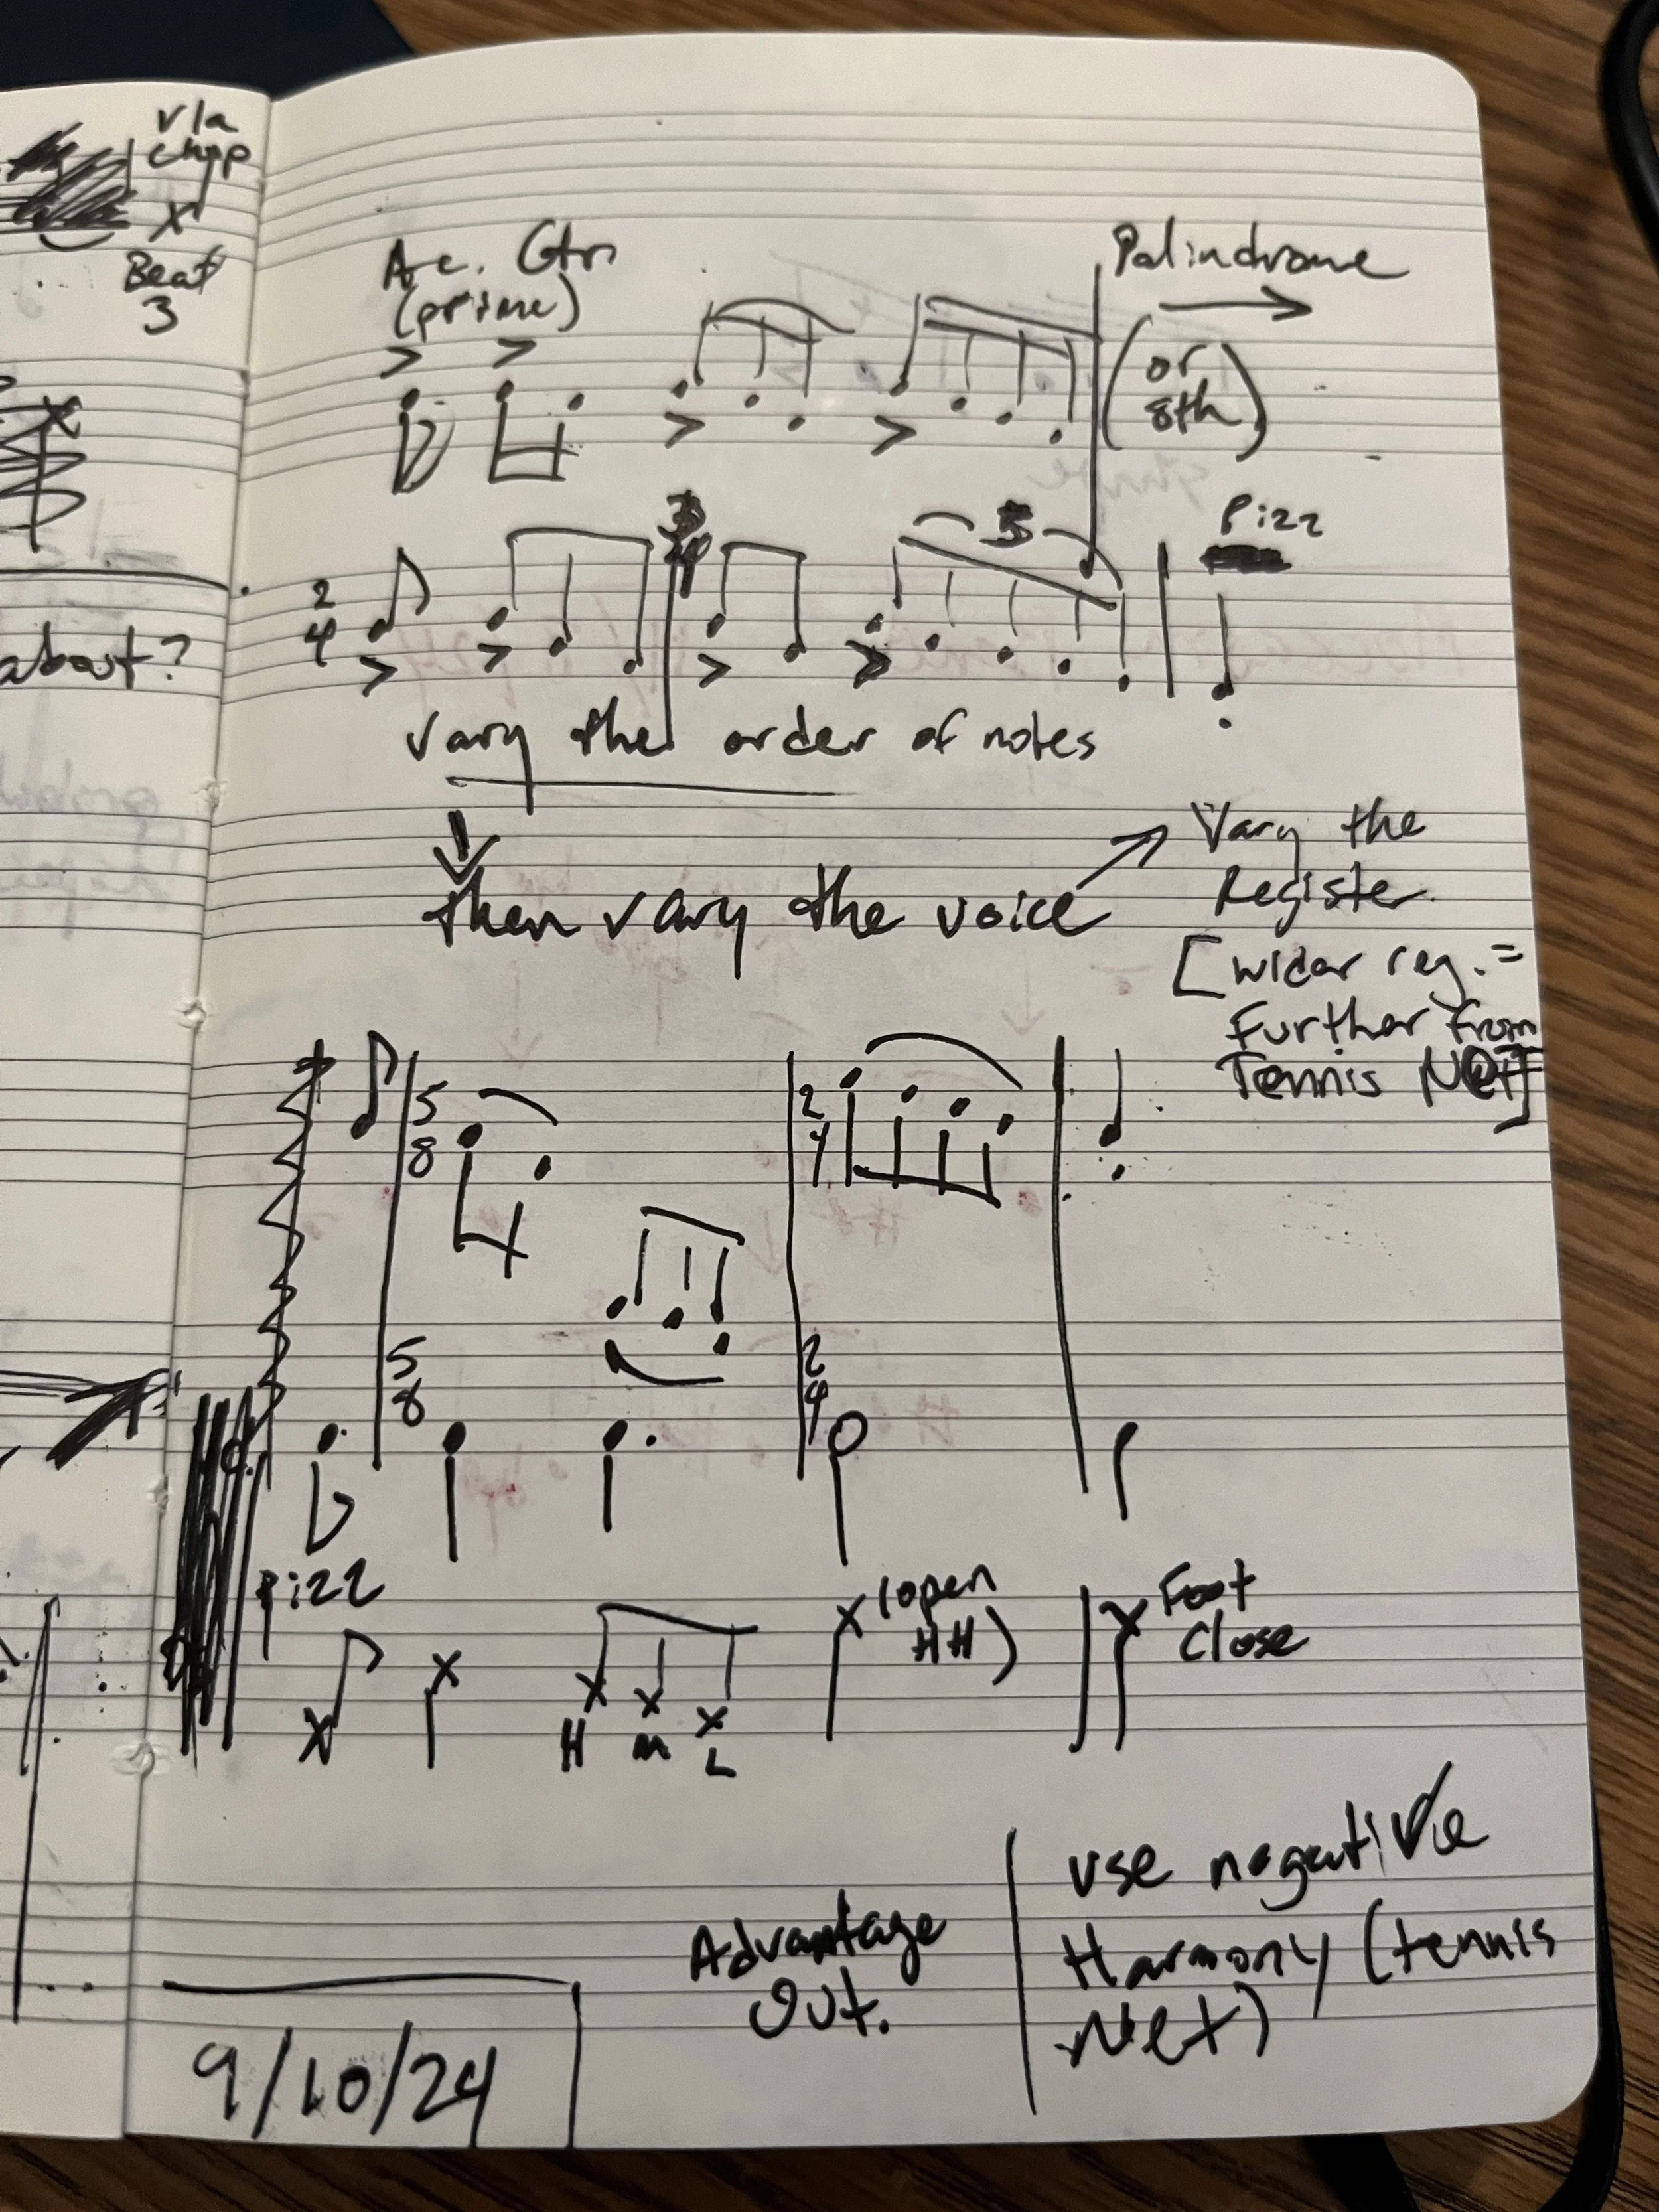 vla
chop
Beat
3
about?
Ac. Gtr
(prime)
Palindrome
(or
8th)
2
4
3
4
5
Pizz
vary the order of notes
then vary the voice
Vary the
Register.
[wider reg. =
Further from
Tennis Net]
5
8
2
4
5
8
2
4
Pizz
(open
HH)
Foot
Close
H M L
Advantage
Out.
use negative
Harmony (tennis
Net)
9/10/24